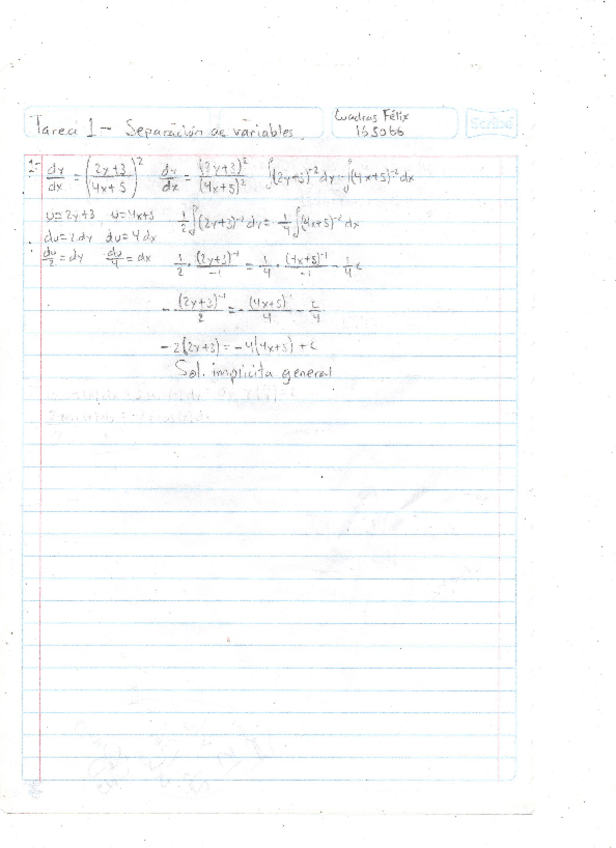 Tarea 1 - Separación de variables.
Cuadras Félix
165066
Scribe
1.- dy/dx = ((2y+3)/(4x+5))^2 dy/dx = (2y+3)^2/(4x+5)^2 ∫(2y+3)^-2 dy = ∫(4x+5)^-2 dx
u=2y+3 u=4x+5 1/2 ∫(2y+3)^-2 dy = 1/4 ∫(4x+5)^-2 dx
du=2dy du=4dx
du/2=dy du/4=dx 1/2 · (2y+3)^-1/-1 = 1/4 · (4x+5)^-1/-1 - 1/4 c
-(2y+3)^-1/2 = -(4x+5)^-1/4 - c/4
-2(2y+3) = -4(4x+5) + c
Sol. implicita general